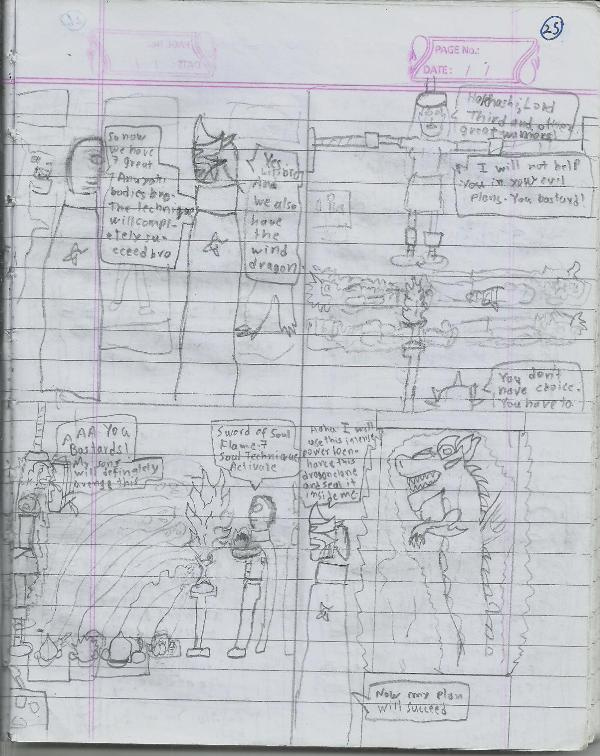 25
PAGE No.:
DATE: / /
So now
we have
7 great
bodies bro.
The technique
will compl-
etely su-
cceed bro
Yes,
lil bro
And
we also
have
the
wind
dragon
Lord
Third and other
great warriors!
I will not help
you in your evil
plans. You bastard!
You don't
have choice.
You have to
AAA You
Bastards!
My sons
will definately
avenge this
Sword of Soul
Flame: 7
Soul Technique
Activate
Haha I will
use this
power
dragon
and seal it
inside me
Now my plan
will succeed